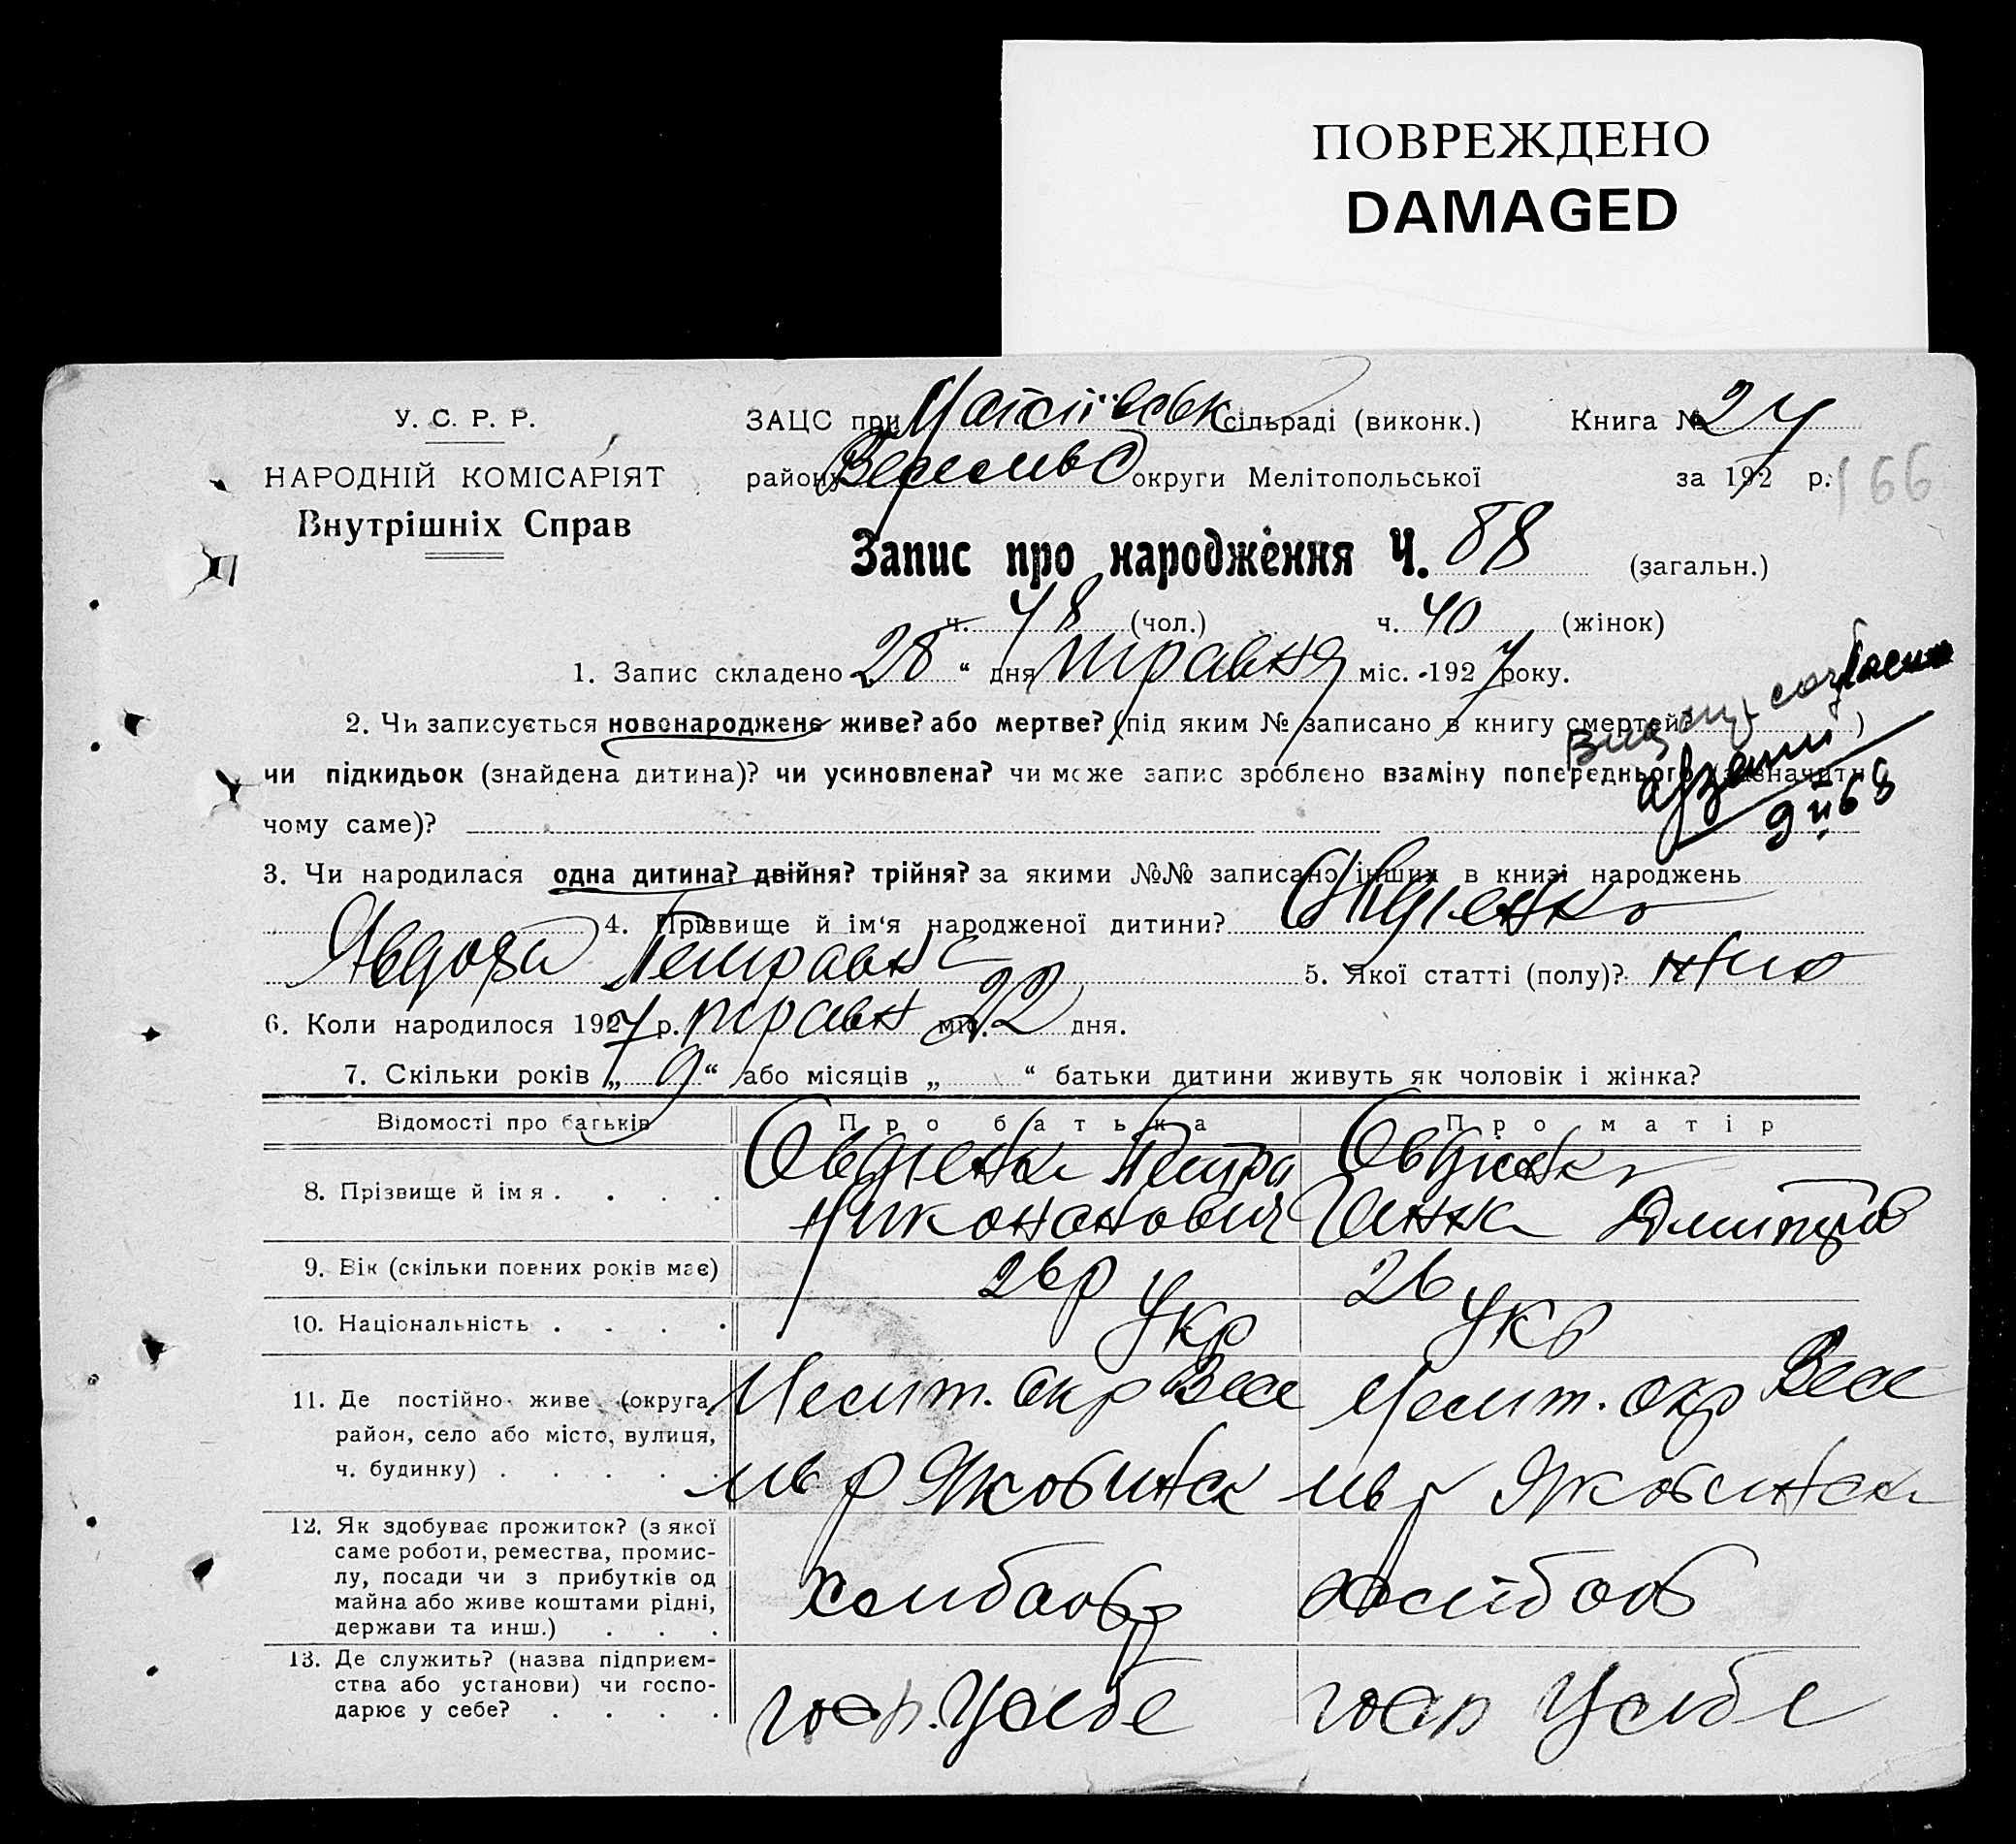 ПОВРЕЖДЕНО
DAMAGED
У. С. Р. Р.
НАРОДНІЙ КОМІСАРІЯТ
Внутрішніх Справ
ЗАЦС при сільраді (виконк.)
Книга № 24
району Весельв округи Мелітопольської
за 1927 р. 166
Запис про народження Ч. 88 (загальн.)
ч. 48 (чол.) ч. 40 (жінок)
1. Запис складено 28 “ дня травня міс. 1927 року.
2. Чи записується новонароджене живе? або мертве? (під яким № записано в книгу смертей )
чи підкидьок (знайдена дитина)? чи усиновлена? чи може запис зроблено взаміну попереднього (зазначити
чому саме)?
9 II 68
3. Чи народилася одна дитина? двійня? трійня? за якими №№ записано інших в книзі народжень
4. Прізвище й ім‘я народженої дитини? Овдіенко
Явдоха Петравна 5. Якої статті (полу)? жіно
6. Коли народилося 1927 р. травн міс. 22 дня.
7. Скільки років „ 9 “ або місяців „ “ батьки дитини живуть як чоловік і жінка?
Відомості про батьків
Про батька
Про матір
8. Прізвище й імя . . . .
Овдіенко Петро
Никонанович
Овдіенко
Ганна Дмитрів
9. Вік (скільки повних років має)
26 р
26
10. Національність . . . .
Укр
Укр
11. Де постійно живе (округа,
район, село або місто, вулиця,
ч. будинку) . . . . .
Мелит. окр Весе
льв р Якобинск
Мелит. окр Весе
льв р Якобинск
12. Як здобуває прожиток? (з якої
саме роботи, ремества, промис-
лу, посади чи з прибутків од
майна або живе коштами рідні,
держави та инш.) . . .
хлибаобр
хлибооб
13. Де служить? (назва підприєм-
ства або установи) чи госпо-
дарює у себе? . . . .
госп. Усебе
госп Усебе